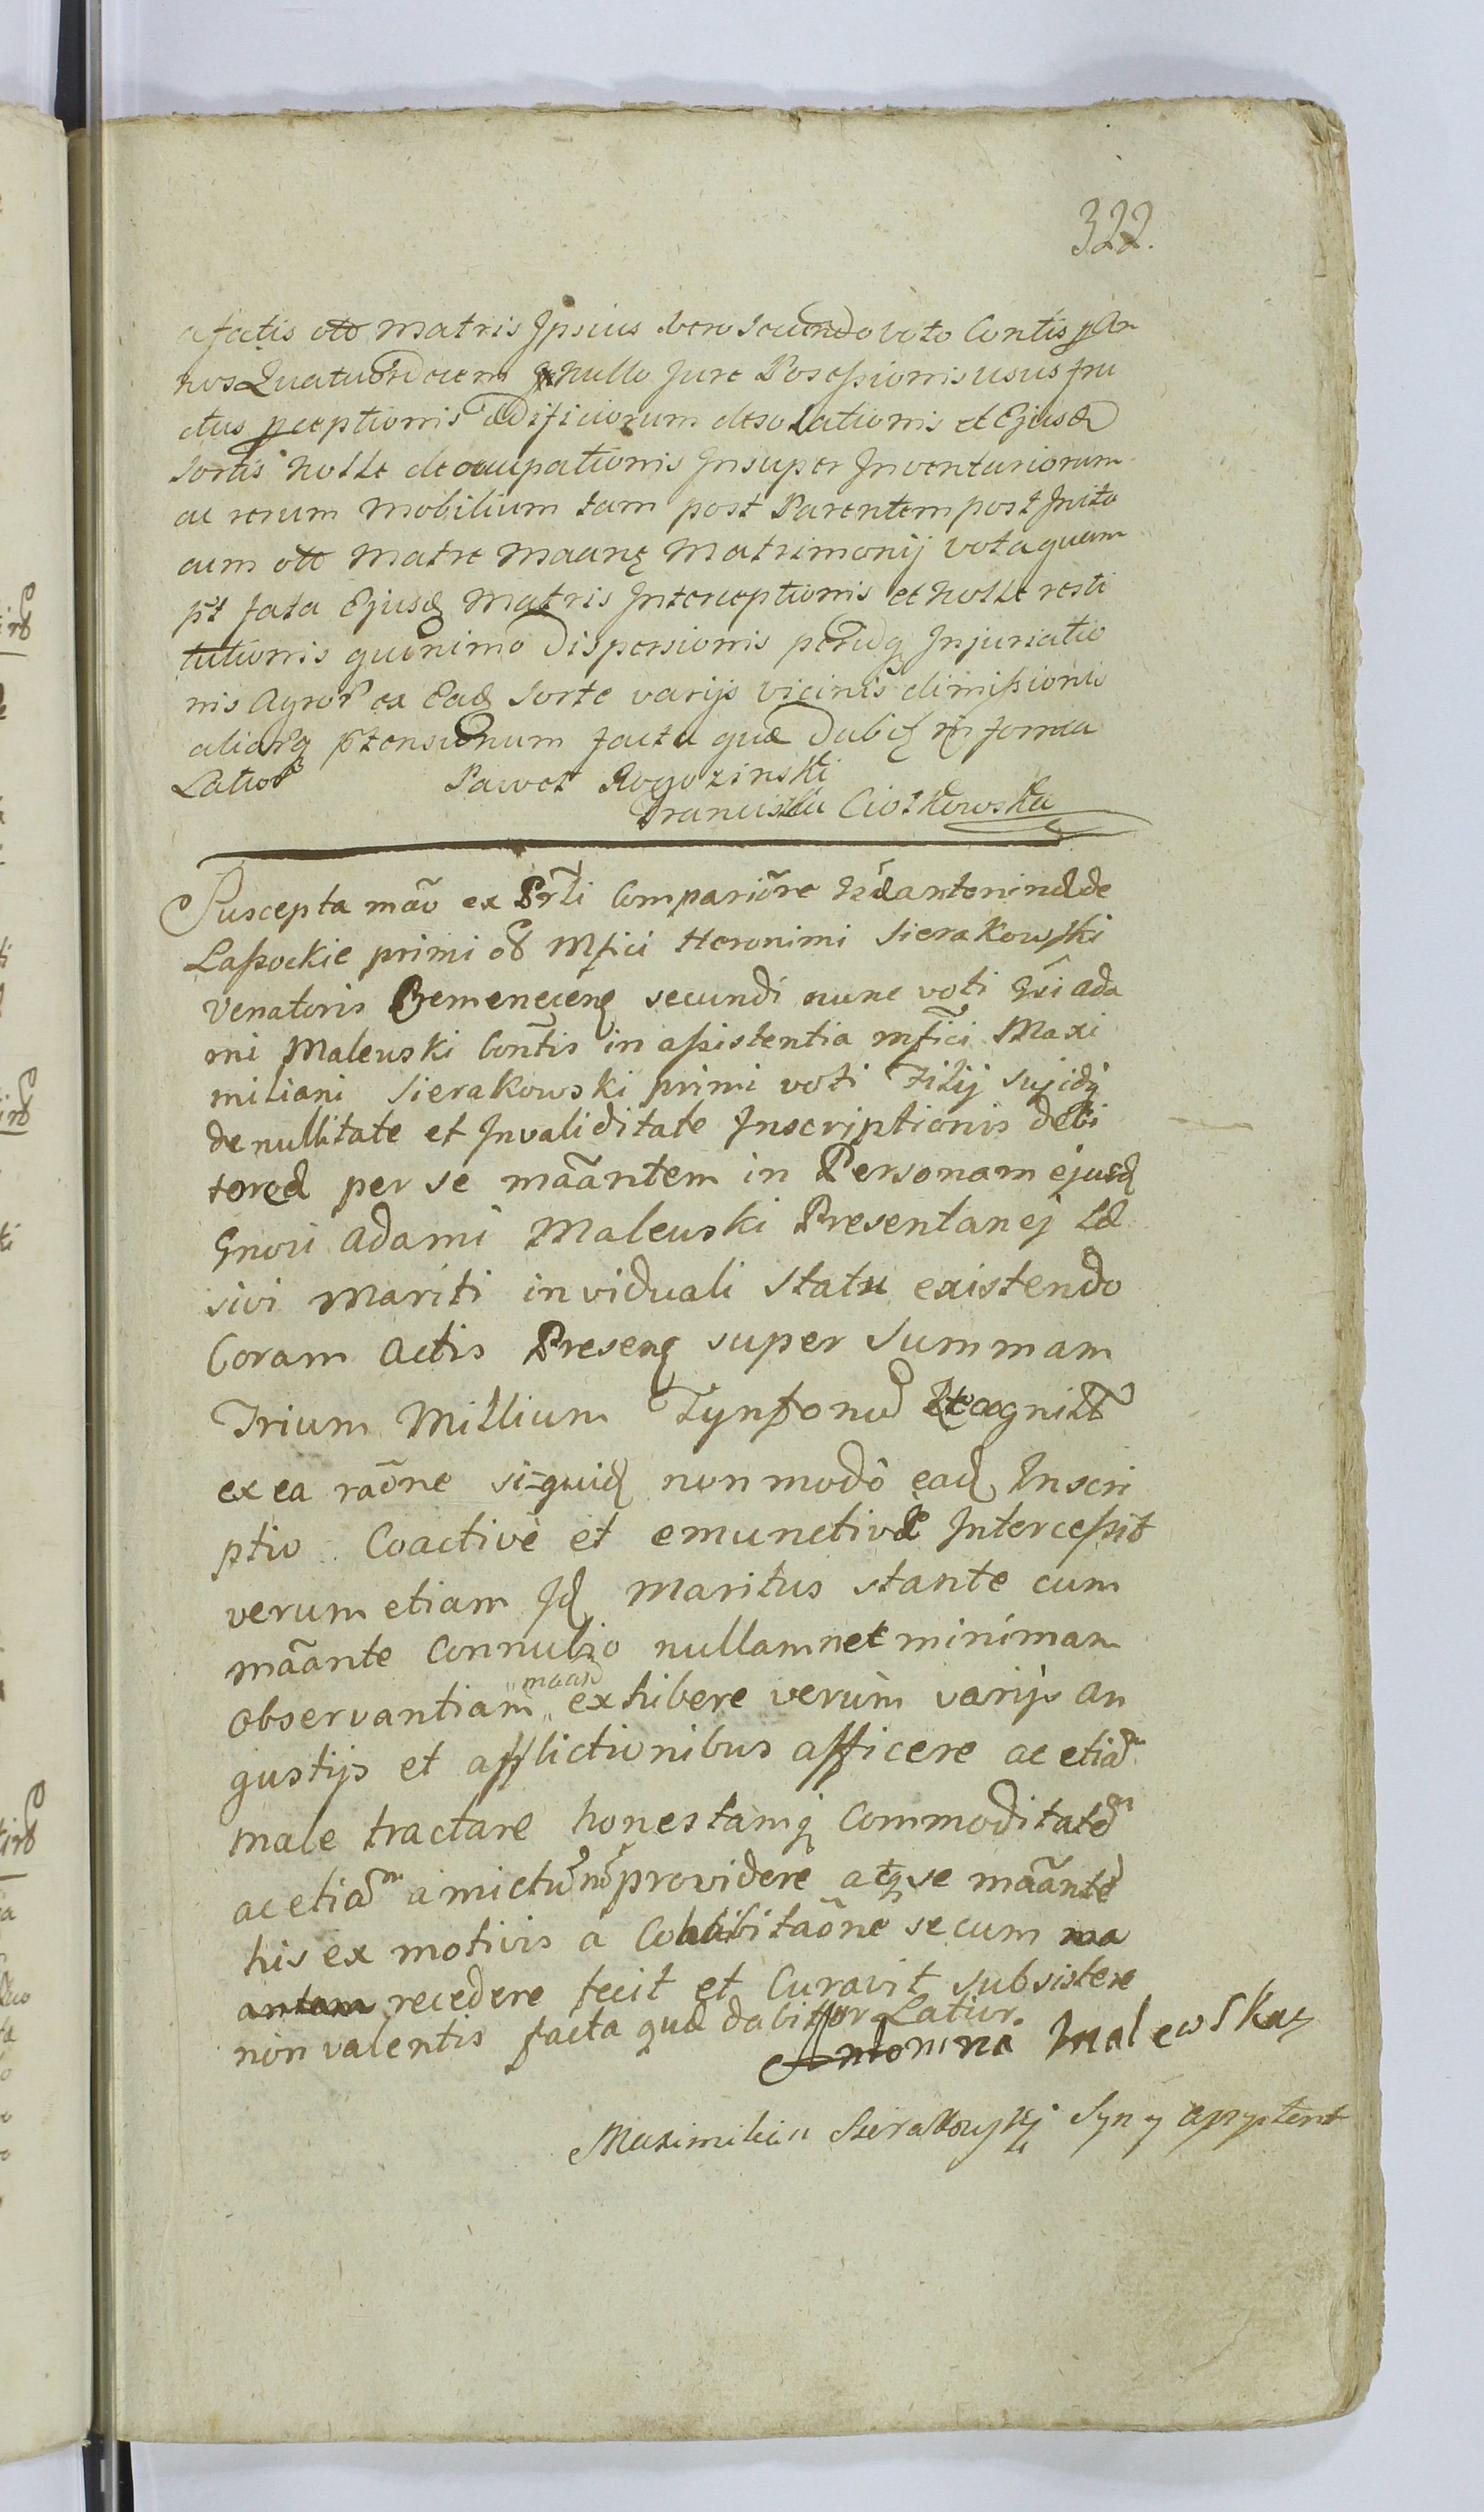 322.
a fatis olto Matris Ipsius vero secundo voto Contis p An
nos Quatuordecem nullo Jure Posessionis usus fru
ctus pceptionis ædificiorum desolationis et Ejusd
Sortis nolle deocupationis Insuper Inventariorum
ac rerum Mobilium tam post Parentem post Inita
cum olto Matre Maanę Matrimonij vota quam
pt fata Ejusd Matris Interceptionis et nolle resti
tutionis quinimo Dispersionis Injuriatio
nis Agror ex Ead Sorte varijs vicinis dimissionis
aliarq ptensionum facta quæ Dabit in forma
Lator
Paweł Rogozinski
Franciska Ciołkowska
Suscepta mão ex Prli Compariõre Antonina de
Lassockie primi Mfici Heronimi Sierakowski
Venatoris secundi nunc voti Gsi Ada
mi Maleuski Contis in assistentia mfici Maxi
miliani Sierakowski primi voti Filij sui
de nullitate et Invaliditate Inscriptionis debi
toreæ per se mãantem in Personam ejusd
Gnosi Adami Maleuski Presentanej Læ
sivi Mariti in viduali statu existendo
Coram Actis Presenę super Summam
Trium Millium Tynfonu Recognitæ
ex ea raõne si-quid non modô ead Inscri
ptio Coactivè et emunctivæ Intercessit
verum etiam Id Maritus stante cum
mãante Connubio nullam net minimam
maan
observantiam exhibere verùm varijs an
gustijs et afflictionibus afficere ac etiam
male tractare honestamq Commoditatem
ac etiam amictu nõ providere atq se mãante
his ex motivis a Cohabitaõne secum ma
antam recedere fecit et Curavit subsistere
non valentis facta quæ dabittur Latiur.
Antonina Malewska
Maximilian Sierakowski Syn y assystent